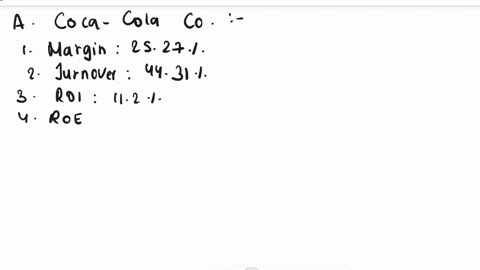 A. Coca-Cola Co. :-
1. Margin : 25.27%.
2. Turnover : 44.31%.
3. ROI : 11.2%.
4. ROE